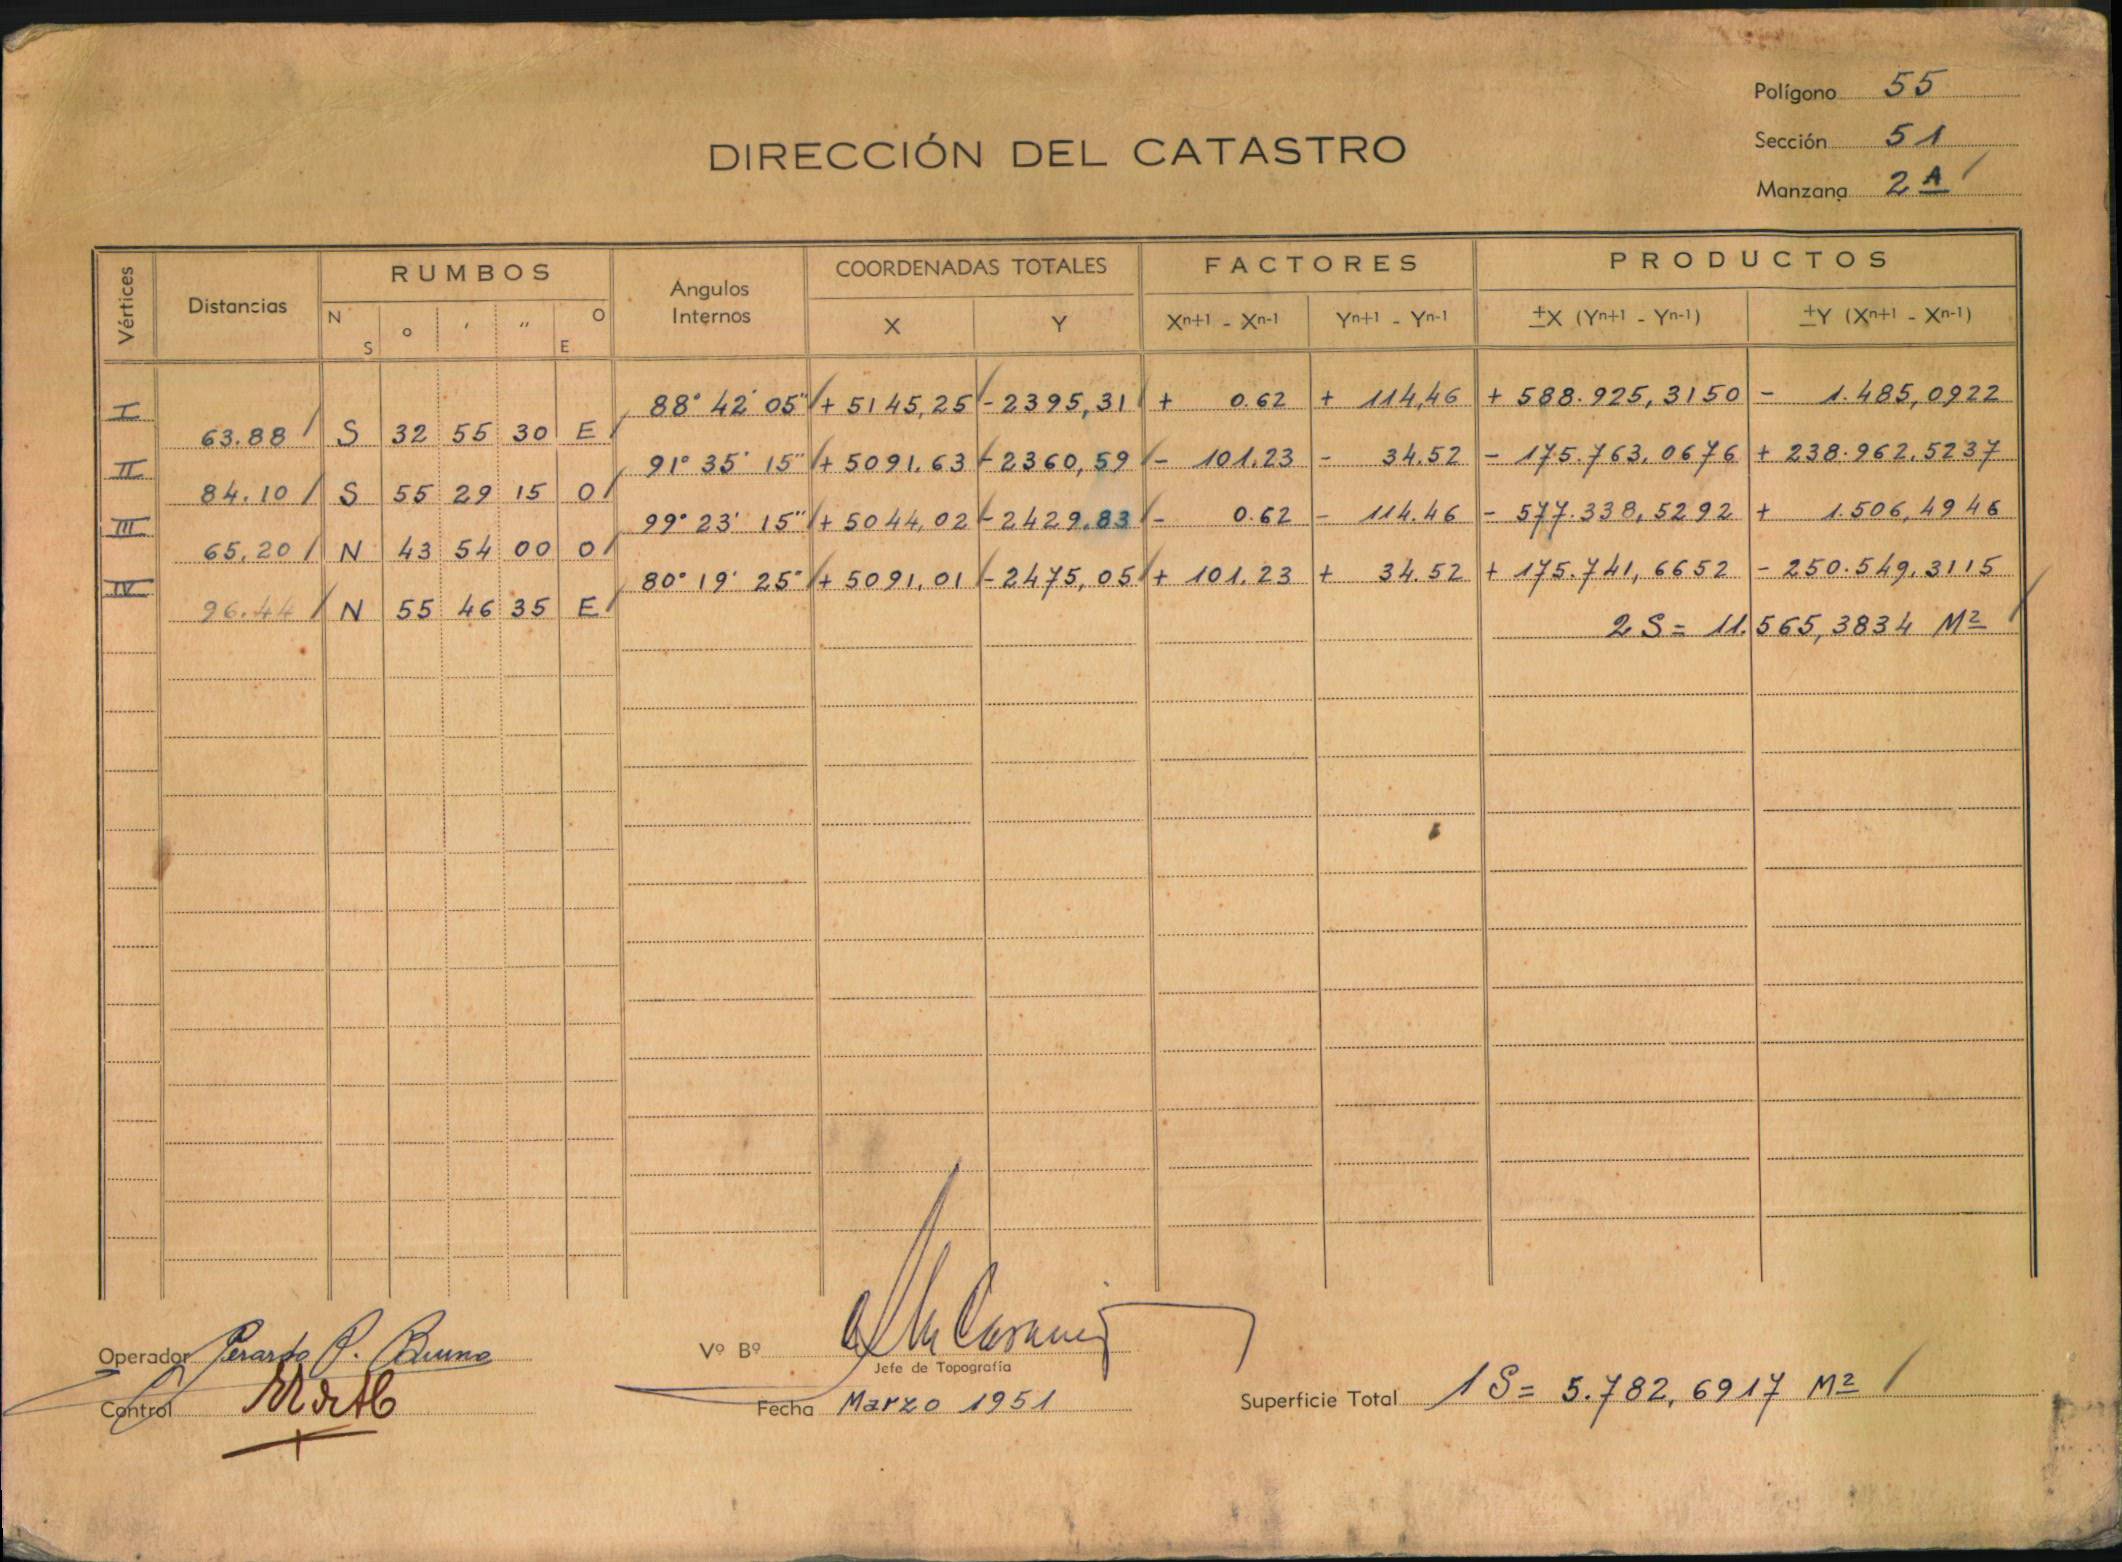 Polígono 55
DIRECCIÓN DEL CATASTRO
Sección 51
Manzana 2 A
Vértices Distancias RUMBOS Angulos Internos COORDENADAS TOTALES FACTORES PRODUCTOS
N S ° ' " O E X Y Xn+1 - Xn-1 Yn+1 - Yn-1 ±X (Yn+1 - Yn-1) ±Y (Xn+1 - Xn-1)
I 88° 42' 05" + 5145,25 - 2395,31 + 0.62 + 114,46 + 588.925,3150 - 1.485,0922
63.88 S 32 55 30 E
II 91° 35' 15" + 5091.63 - 2360,59 - 101.23 - 34.52 - 175.763,0676 + 238.962.5237
84.10 S 55 29 15 O
III 99° 23' 15" + 5044,02 - 2429.83 - 0.62 - 114.46 - 577.338,5292 + 1.506,4946
65,20 N 43 54 00 O
IV 80° 19' 25" + 5091,01 - 2475,05 + 101.23 + 34.52 + 175.741,6652 - 250.549.3115
96.44 N 55 46 35 E
2 S = 11.565,3834 M2
Operador
Vº Bº
Jefe de Topografía
Control
Fecha Marzo 1951
Superficie Total 1 S = 5.782,6917 M2